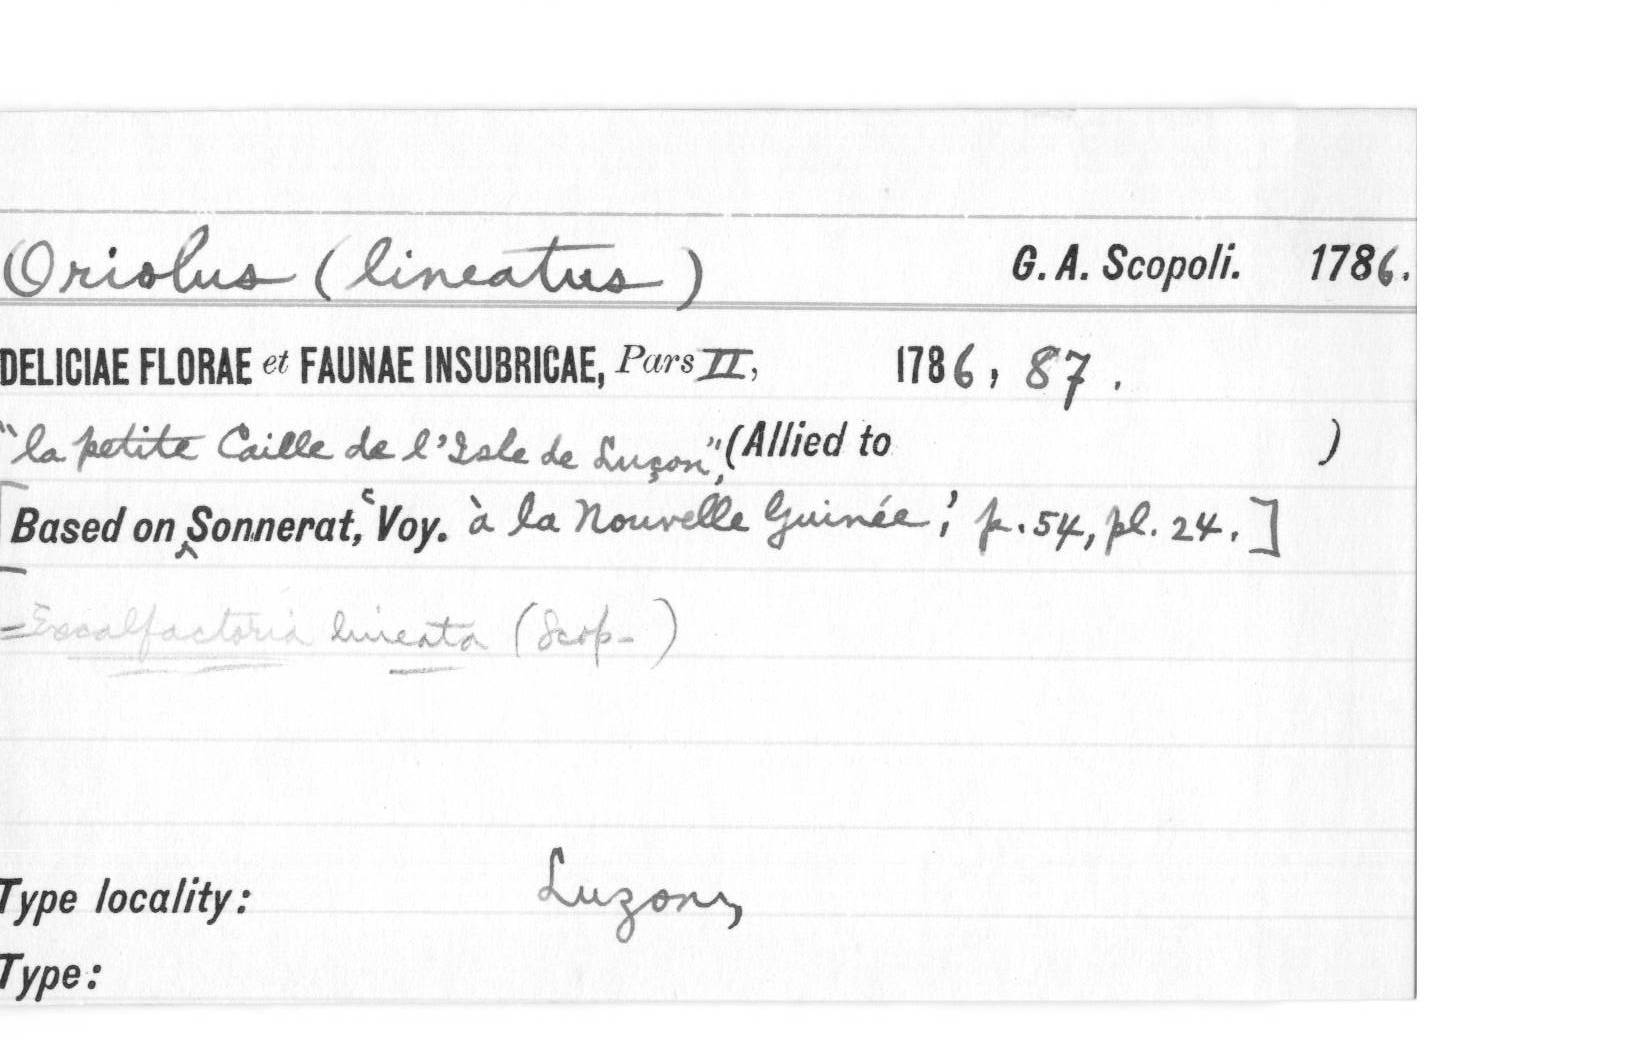 Oriolus (lineatus) G. A. Scopoli. 1786.
DELICIAE FLORAE et FAUNAE INSUBRICAE, Pars II, 1786, 87.
"la petite Caille de l'Isle de Luçon", (Allied to )
[Based on Sonnerat, 'Voy. à la Nouvelle Guinée,' p. 54, pl. 24.]
= Excalfactoria lineata (Scop-)
Type locality: Luzon,
Type: